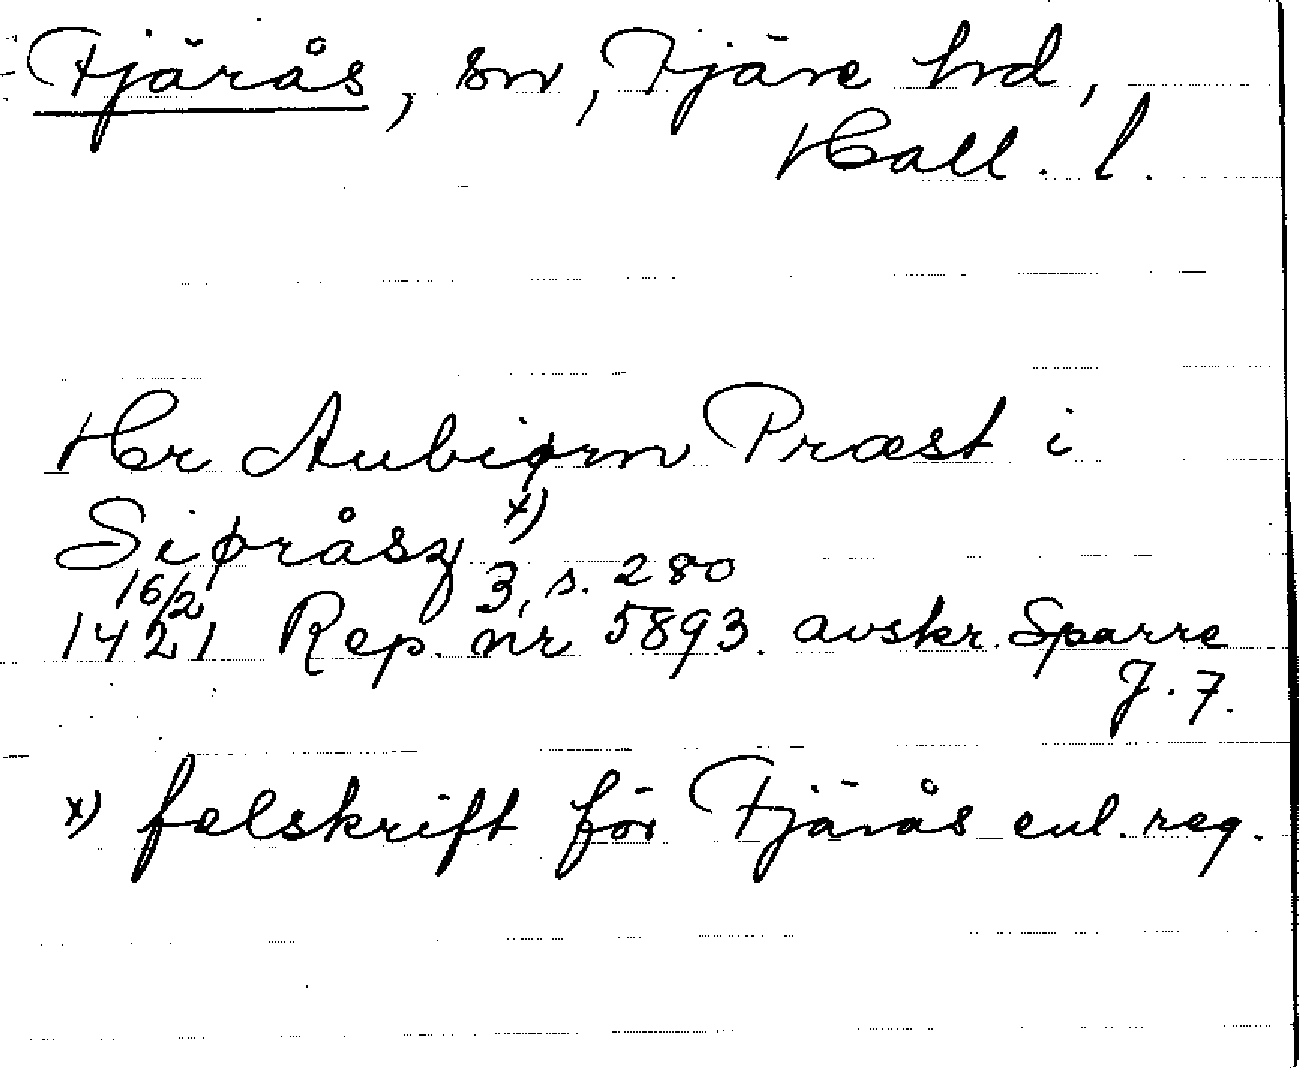 Fjärås, sn, Fjäre hd,
Hall. l.
Hr Aubiørn Præst i
Siøråsz x)
16/2 3, s. 280
1421 Rep. nr 5893. avskr. Sparre
J. 7.
x) felskrift för Fjärås enl. reg.